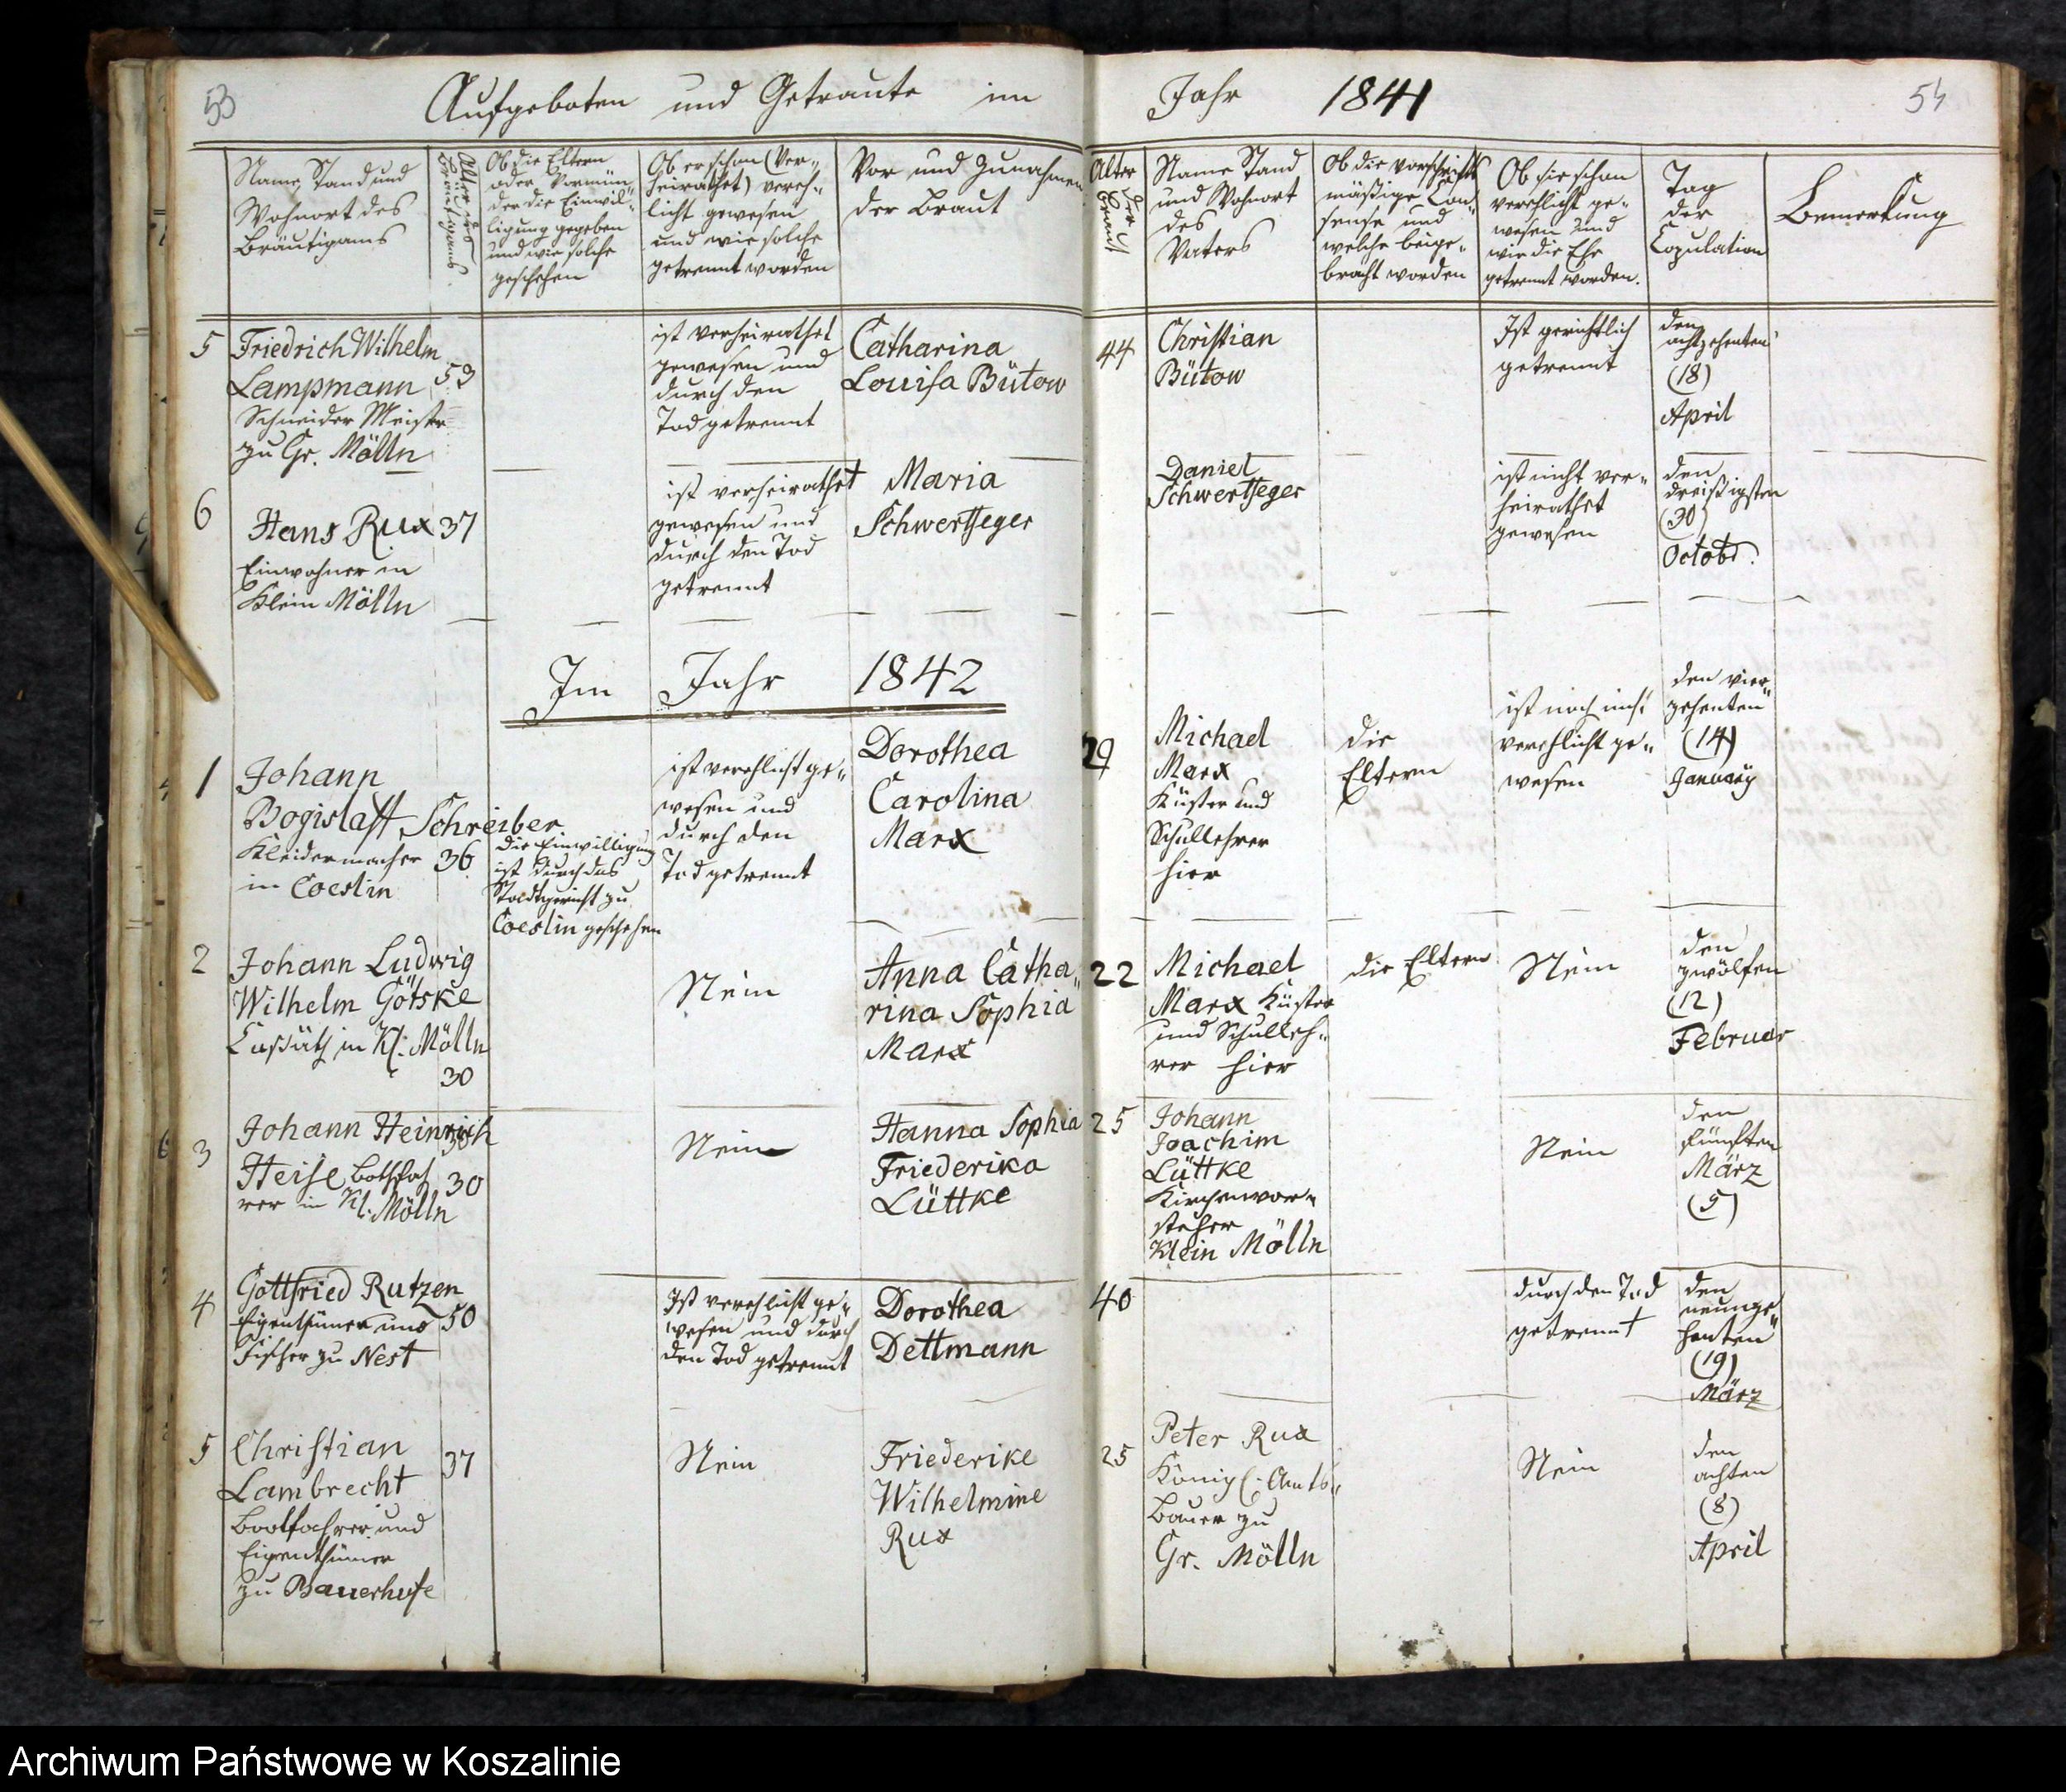 53
Aufgeboten und Getraute im
Jahr 1841
54
Name, Stand und
Wohnort des
Bräutigams
Alter des
Bräutigams
Ob die Eltern
oder Vormün„
der die Einwil„
ligung gegeben
und wie solche
geschehen
Ob er schon (Ver„
heirathet) vereh„
licht gewesen
und wie solche
getrennt worden
Vor und Zunahmen
der Braut
Alter
der
Braut
Name Stand
und Wohnort
des
Vaters
Ob die vorschrifts
mäßige Con„
sense und
welche beige„
bracht worden
Ob sie schon
verehlicht ge„
wesen und
wie die Ehe
getrennt worden.
Tag
der
Copulation
Bemerkung
5
Friedrich Wilhelm
Lampmann 53
Schneider Meister
zu Gr. Mölln
ist verheirathet
gewesen und
durch den
Tod getrennt
Catharina
Louisa Bütow
44
Christian
Bütow
Ist gerichtlich
getrennt
den
achtzehenten
(18)
April
6
Hans Rux 37
Einwohner in
Klein Mölln
ist verheirathet
gewesen und
durch den Tod
getrennt
Maria
Schwertfeger
Daniel
Schwertfeger
ist nicht ver„
heirathet
gewesen
den
dreißigsten
(30)
Octobr.
Im Jahr 1842
1
Johann
Bogislaff Schreiber
Kleidermacher 36
in Coeslin
die Einwilligung
ist durch das
Stadtgericht zu
Coeslin geschehen
ist verehlicht ge„
wesen und
durch den
Tod getrennt
Dorothea
Carolina
Marx
29
Michael
Marx
Küster und
Schullehrer
hier
die
Eltern
ist noch nicht
verehlicht ge„
wesen
den vier„
zehenten
(14)
January
2
Johann Ludwig
Wilhelm Götske
Coßäth in Kl: Mölln
30
Nein
Anna Catha„
rina Sophia
Marx
22
Michael
Marx Küster
und Schulleh„
rer hier
die Eltern
Nein
den
zwölfen
(12)
Februar
3
Johann Heinrich
Heise Botsfah
rer in Kl. Mölln
30
Nein
Hanna Sophia
Friederika
Lüttke
25
Johann
Joachim
Lüttke
Kirchenvor„
steher
Klein Mölln
Nein
den
fünften
März
(5)
4
Gottfried Rutzen
Eigenthümer und 50
Fischer zu Nest
Ist verehlicht ge„
wesen und durch
den Tod getrennt
Dorothea
Dettmann
40
durch den Tod
getrennt
den
neunze„
henten
(19)
März
5
Christian
Lambrecht
37
Bootfahrer und
Eigenthümer
zu Bauerhufe
Nein
Friederike
Wilhelmine
Rux
25
Peter Rux
Königl: Amts„
Bauer zu
Gr. Mölln
Nein
den
achten
(8)
April
Archiwum Państwowe w Koszalinie